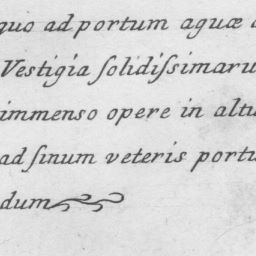 quo ad portum aguæ
Vestigia ſolidiſsimaru
immenso opere in altu
ad ſinum veteris portu
dum